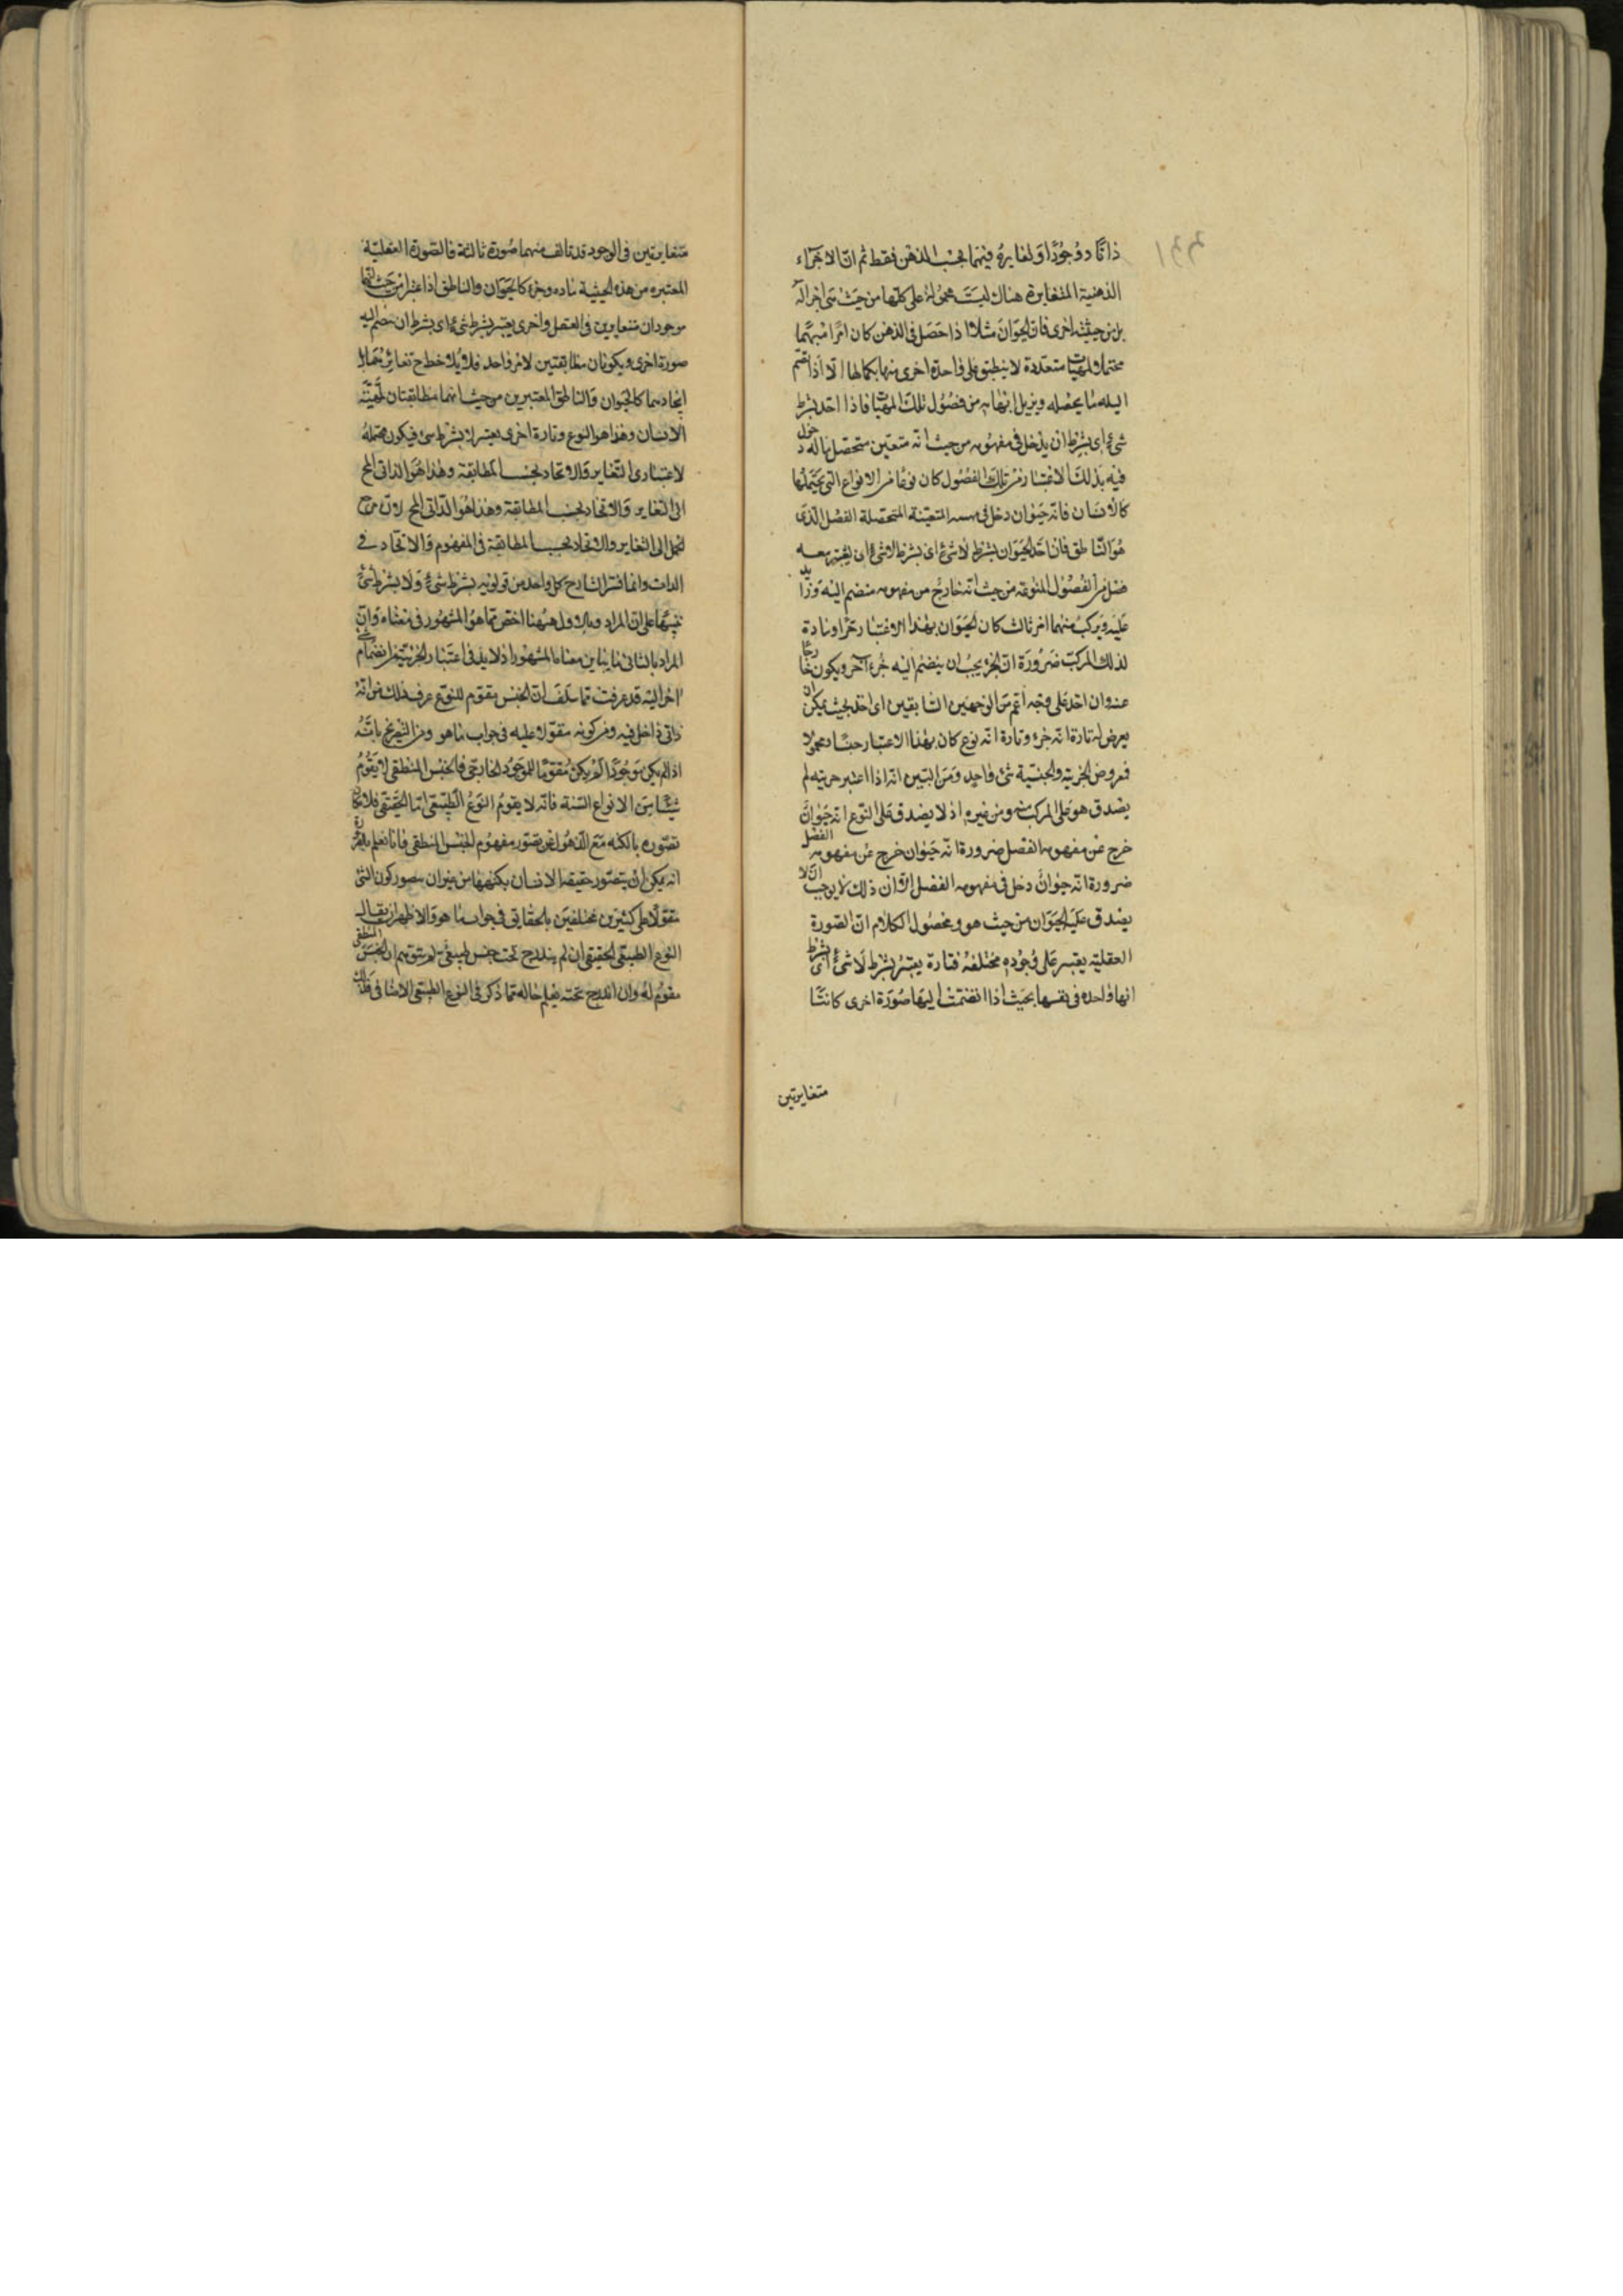 ذاتا ووجودا ولمغايرة فيهما بحسب الذهن فقط ثم ان الاجزاء
الذهنية المتغايرة هناك ليست محمولة على كلها من حيث هى اجزاله
بل من حيثية اخرى فان الحيوان مثلا اذا حصل فى الذهن كان امرا مبهما
محتملا لمهيات متعددة لا ينطبق على واحدة اخرى منها بكمالها الا اذا انضم
اليه ما يحصله ويزيل ابهامه من فصول تلك المهيات فاذا اخذ بشرط
شىء اى بشرط ان يدخل فى مفهومه من حيث انه متعين متحصل ماله دخول
فيه بذلك الاعتبار من تلك الفصول كان نوعا من الانواع التى يحتملها
كالانسان فانه حيوان دخل فى المتعينة المتحصلة الفصل الذى
هو الناطق فان اخذ الحيوان بشرط لا شىء اى بشرط لا شىء اى يعتبر معه
فصل من الفصول المنوعة من حيث انه خارج من مفهومه منضم اليه وزايد
عليه ويركب منهما امر ثالث كان الحيوان بهذا الاعتبار جزا ومادة
لذلك المركب ضرورة ان الجزء يجب ان ينضم اليه جزء آخر ويكون خارجا
عنه وان اخذ على وجه اعم من الوجهين السابقين اى اخذ بحيث يمكن ان
يعرض له تارة انه جزء وتارة انه نوع كان بهذا الاعتبار جنسا ومحمولا
فمعروض الجزية والجنسية شىء واحد ومن البين انه اذا اعتبر جزيته لم
يصدق هو على المركب منه ومن غيره اذ لا يصدق على النوع انه حيوان
خرج عن مفهومه الفصل ضرورة انه حيوان خرج عن مفهومه الفصل
ضرورة انه حيوان دخل فى مفهومه الفصل الا ان ذلك لا يوجب ان لا
يصدق عليه الحيوان من حيث هو ومحصول الكلام ان الصورة
العقلية يعتبر على وجوه مختلفة فتارة يعتبر بشرط لا شىء اى بشرط
انها واحدة فى نفسها بحيث اذا انضمت اليها صورة اخرى كانتا
متغايرتين
متغايرتين فى الوجود قد تالف منهما صورة ثالثة فالصورة العقلية
المعتبرة من هذه الحيثية مادة وجزء كالحيوان والناطق اذا اعتبرا من حيث انهما
موجودان متغايرين فى العقل واخرى يعتبر بشرط شىء اى بشرط ان ينضم اليه
صورة اخرى ويكونان مطابقتين لامر واحد فلا يلاحظ ح تغايرهما بل
اتحادهما كالحيوان والناطق المعتبرين من حيث انهما مطابقتان لمهية
الانسان وهذا هو النوع وتارة اخرى يعتبر لا بشرط شىء فيكون محتملة
لاعتبارى التغاير والاتحاد بحسب المطابقة وهذا هو الذاتى المح
الى التغاير والاتحاد بحسب المطابقة وهذا هو الذاتى المح لان مرجع
الحمل الى التغاير والاتحاد بحسب المطابقة فى المفهوم والاتحاد فى
الذات وانما فسر الشارح كل واحد من قوليه بشرط شىء ولا بشرط شىء
تنبيها على ان المراد بالاول ههنا اخص مما هو المشهور فى معناه وان
المراد بالثانى ما يباين معناه المشهور اذ لا بد فى اعتبار الجزئية من انضمام شىء
آخر اليه قد عرفت مما سلف ان الجنس مقوم للنوع عرف ذلك من انه
ذاتى داخل فيه ومن كونه مقولا عليه فى جواب ما هو ومن التصريح بانه
اذا لم يكن موجودا لم يكن مقوما للموجود الخارجى فالجنس المنطقى لا يقوم
شيئا من الانواع الستة فانه لا يقوم النوع الطبيعى اما الحقيقى فلامكان
تصوره بالكنه مع الذهول عن تصور مفهوم الجنس المنطقى فانا نعلم بالضرورة
انه يمكن ان يتصور حقيقة الانسان بكنهها من غير ان يتصور كون الشىء
مقولا على كثيرين مختلفين بالحقايق فى جواب ما هو والاظهر ان يقال
النوع الطبيعى الحقيقى ان لم يندرج تحت جنس طبيعى لم يتوهم ان الجنس المنطقى
مقوم له وان اندرج تحته يعلم حاله مما ذكر فى النوع الطبيعى الاضافى فلذلك